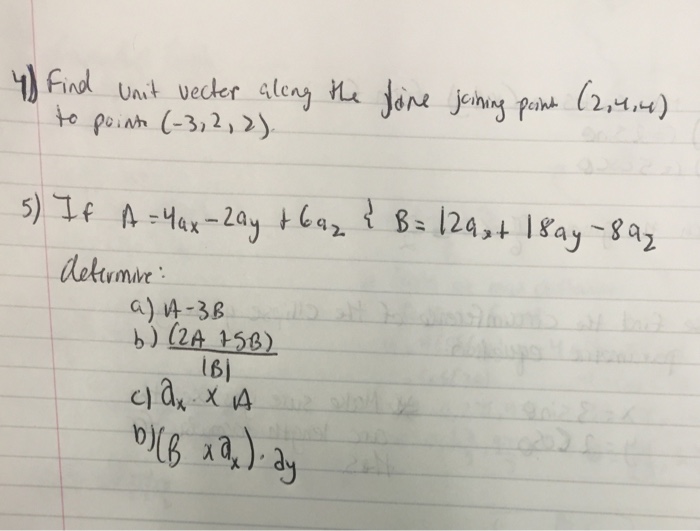 4) Find unit vecter along the line joining point (2,4,4)
to point (-3,2,2).
5) If A = 4ax - 2ay + 6az & B = 12ax + 18ay - 8az
determine:
a) A - 3B
b) (2A + 5B)
|B|
c) ax × A
b) (B × ax) · ay